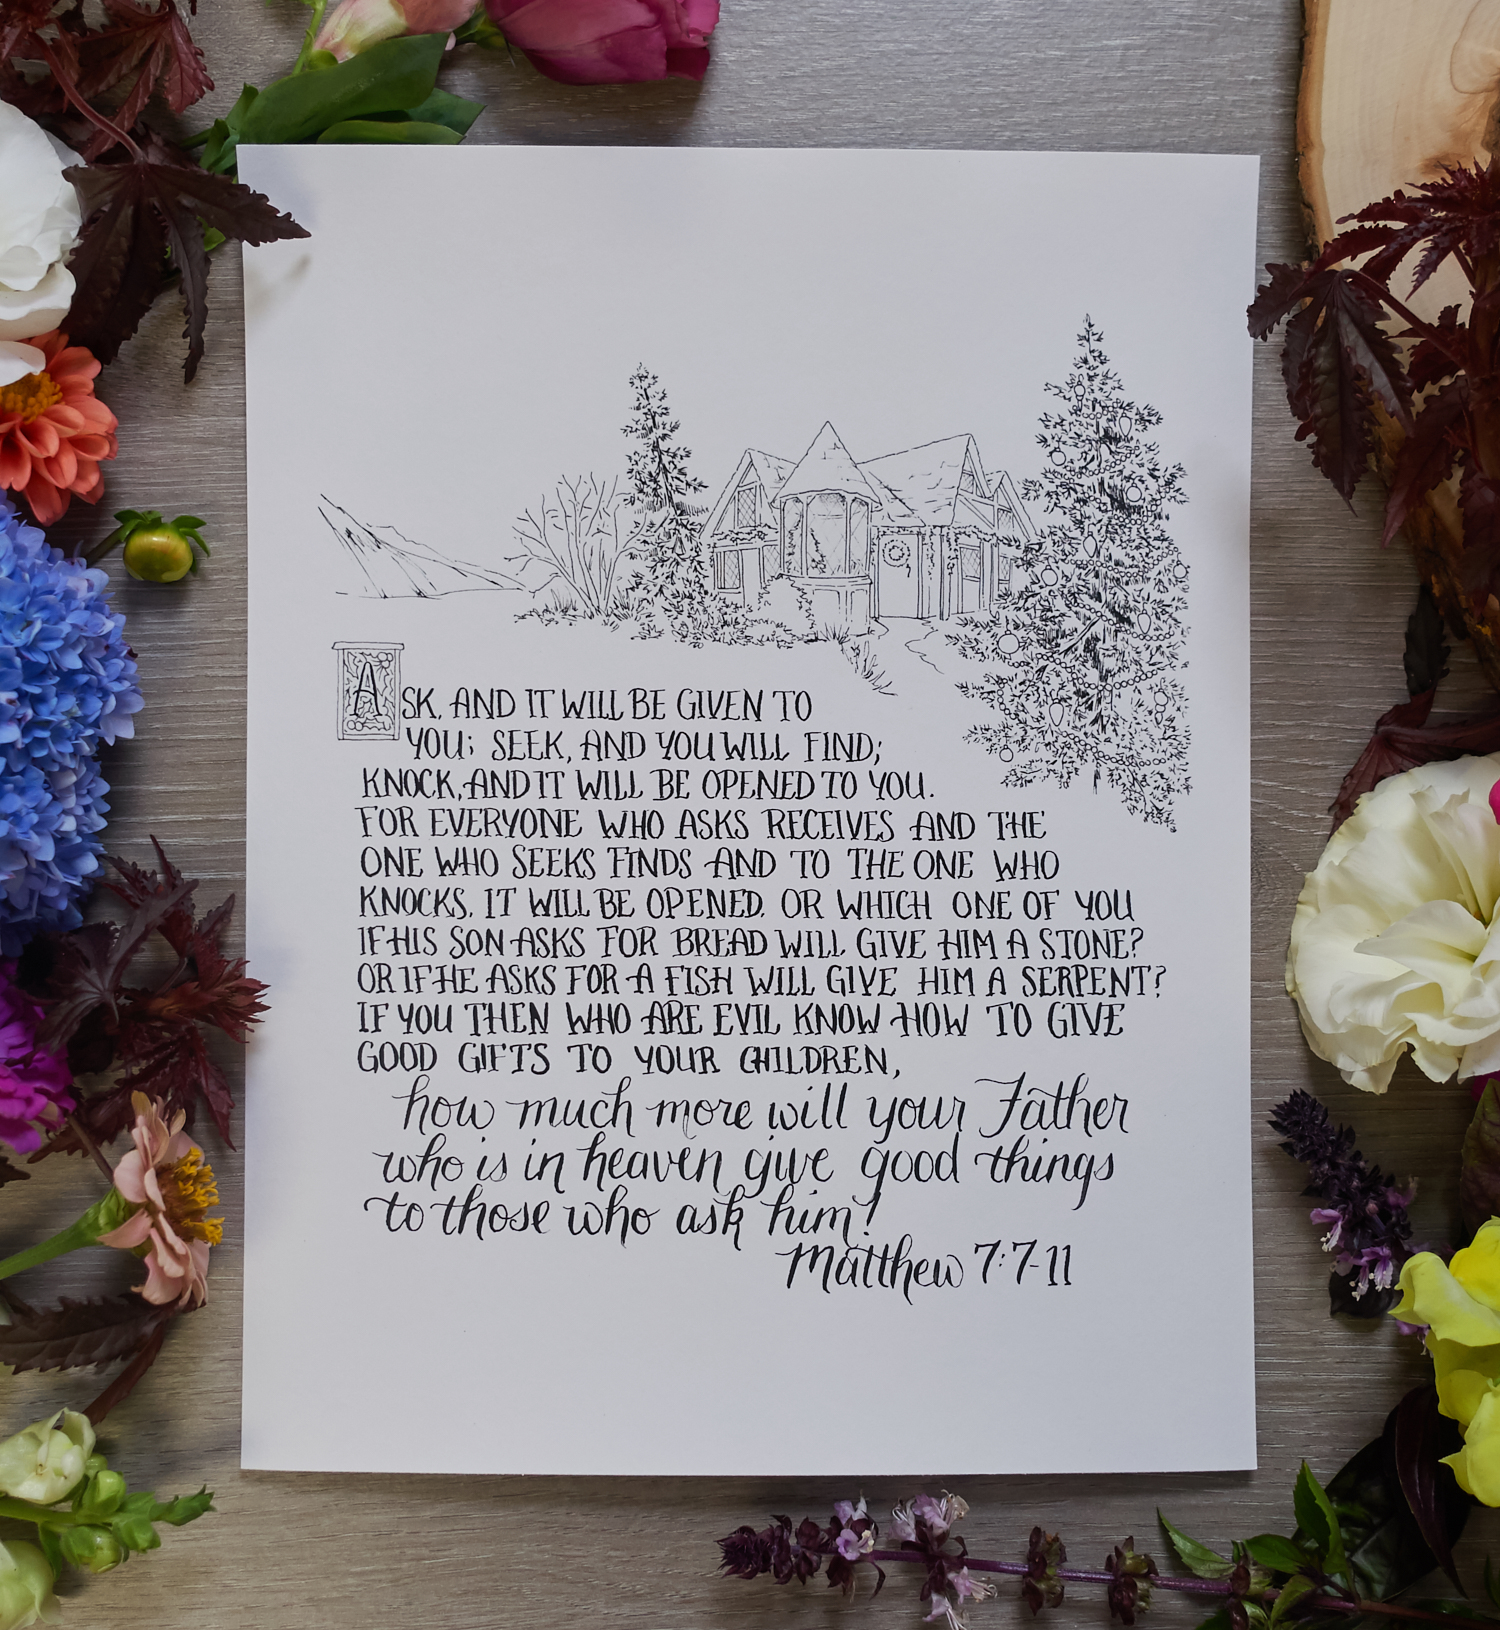 ASK, AND IT WILL BE GIVEN TO
YOU; SEEK, AND YOU WILL FIND;
KNOCK, AND IT WILL BE OPENED TO YOU.
FOR EVERYONE WHO ASKS RECEIVES AND THE
ONE WHO SEEKS FINDS AND TO THE ONE WHO
KNOCKS, IT WILL BE OPENED. OR WHICH ONE OF YOU
IF HIS SON ASKS FOR BREAD WILL GIVE HIM A STONE?
OR IF HE ASKS FOR A FISH WILL GIVE HIM A SERPENT?
IF YOU THEN WHO ARE EVIL KNOW HOW TO GIVE
GOOD GIFTS TO YOUR CHILDREN,
how much more will your Father
who is in heaven give good things
to those who ask him!
Matthew 7:7-11